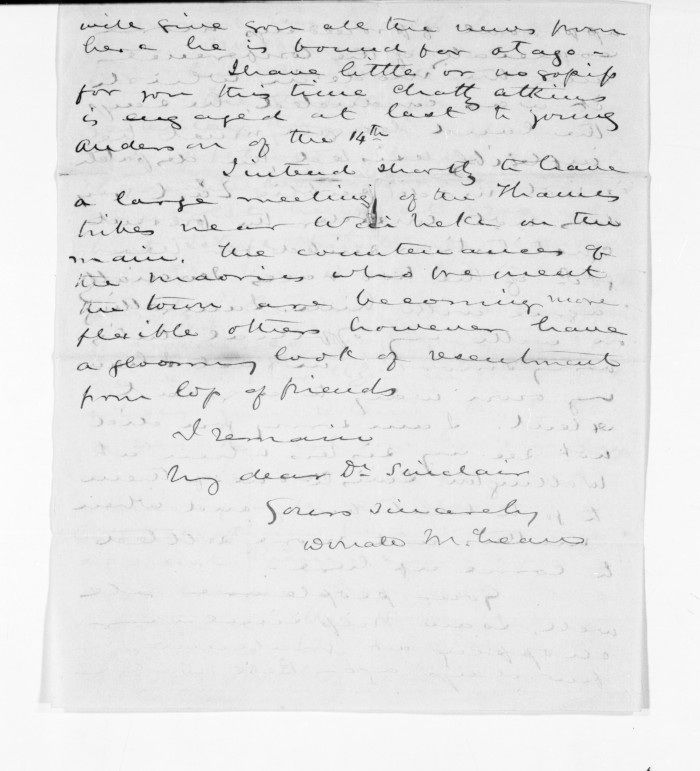 will give you all the news from
here he is bound for otago -
I have little or no gossip
for you this time Chatty Atkins
is engaged at last to young
Anderson of the 14th
I intend shortly to have
a large meeting of the Thames
tribes near Waiheke on the
main. The countenances of
the maories who frequent
the town are becoming more
flexible others however have
a glooming look of resentment
from loss of friends
I remain
My dear Dr Sinclair
Yours sincerely
Donald McLean